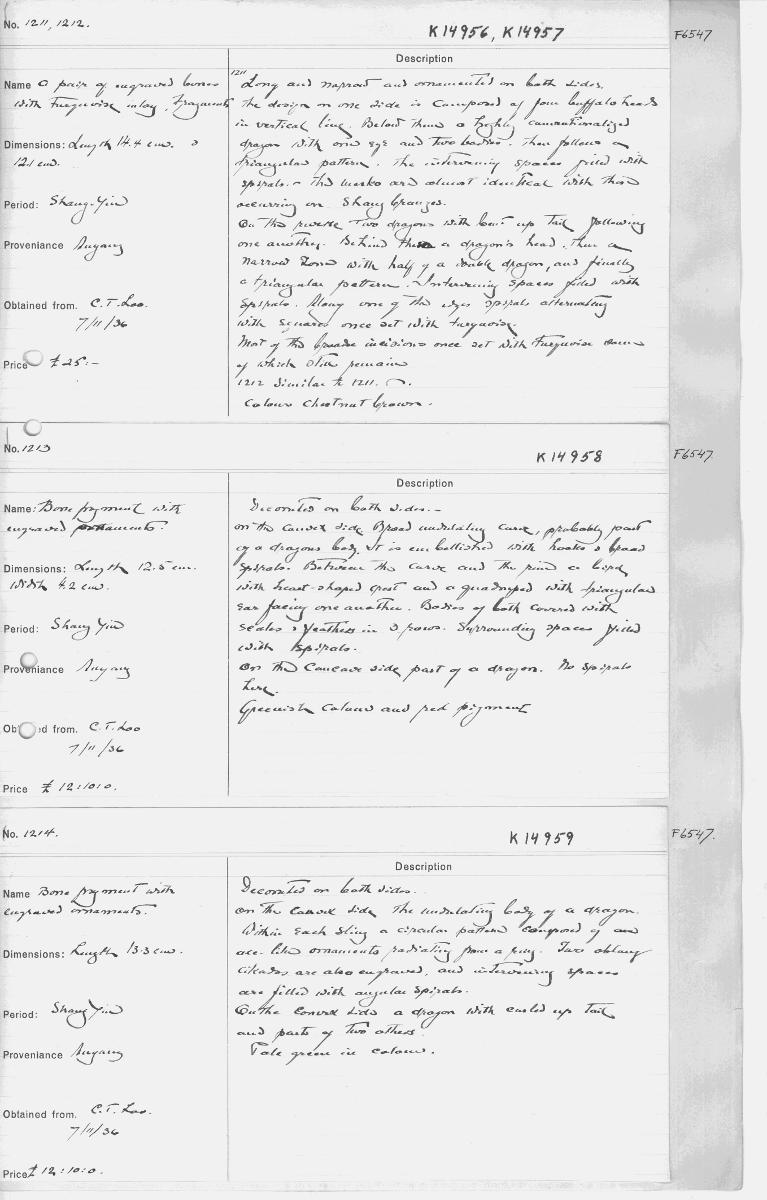 No. 1211, 1212.
K14956, K14957
F6547
Description
Name A pair of engraved bones
with Turquoise inlay, fragments
Dimensions: Length 14.4 cm. &
12.1 cm.
Period: Shang-Yin
Proveniance Anyang
Obtained from. C.T. Loo.
7/11/36
Price £25:-
1211
Long and narrow and ornamented on both sides.
The design on one side is composed of four buffalo heads
in vertical line. Below them a highly conventionalized
dragon with one eye and two bodies. Then follows a
triangular pattern. The intervening spaces filled with
spirals. - The masks are almost identical with those
occurring on Shang bronzes.
On the reverse Two dragons with bent up tail following
one another. Behind them a dragon's head, then a
narrow zone with half of a double dragon, and finally
a triangular pattern. Intervening spaces filled with
spirals. Along one of the edges spirals alternating
with squares once set with turquoise.
Most of the broader incisions once set with Turquoise some
of which still remain
1212 Similar to 1211.
Colour Chestnut brown.
No. 1213
K14958
F6547
Description
Name: Bone fragment with
engraved ornaments.
Dimensions: Length 12.5 cm.
Width 4.2 cm.
Period: Shang Yin
Proveniance Anyang
Obtained from. C.T. Loo
7/11/36
Price £ 12:10:0.
Decorated on both sides.-
On the convex side Broad undulating curve, probably part
of a dragons body. It is embellished with hooks & broad
spirals. Between the curve and the rind a bird
with heart-shaped crest and a quadruped with triangular
ear facing one another. Bodies of both covered with
scales & feathers in 3 rows. Surrounding spaces filled
with spirals.
On the Concave side part of a dragon. No spirals
here.
Greenish colour and red pigment
No. 1214.
K14959
F6547.
Description
Name Bone fragment with
engraved ornaments.
Dimensions: Length 13.3 cm.
Period: Shang Yin
Proveniance Anyang
Obtained from. C.T. Loo.
7/11/36
Price £ 12:10:0.
Decorated on both sides.
On the convex side The undulating body of a dragon.
Within each sling a circular pattern composed of
like ornaments radiating from a ring. Two oblong
cikadas are also engraved, and intervening spaces
are filled with angular spirals.
On the Convex side a dragon with curled up tail
and parts of two others.
Pale green in colour.